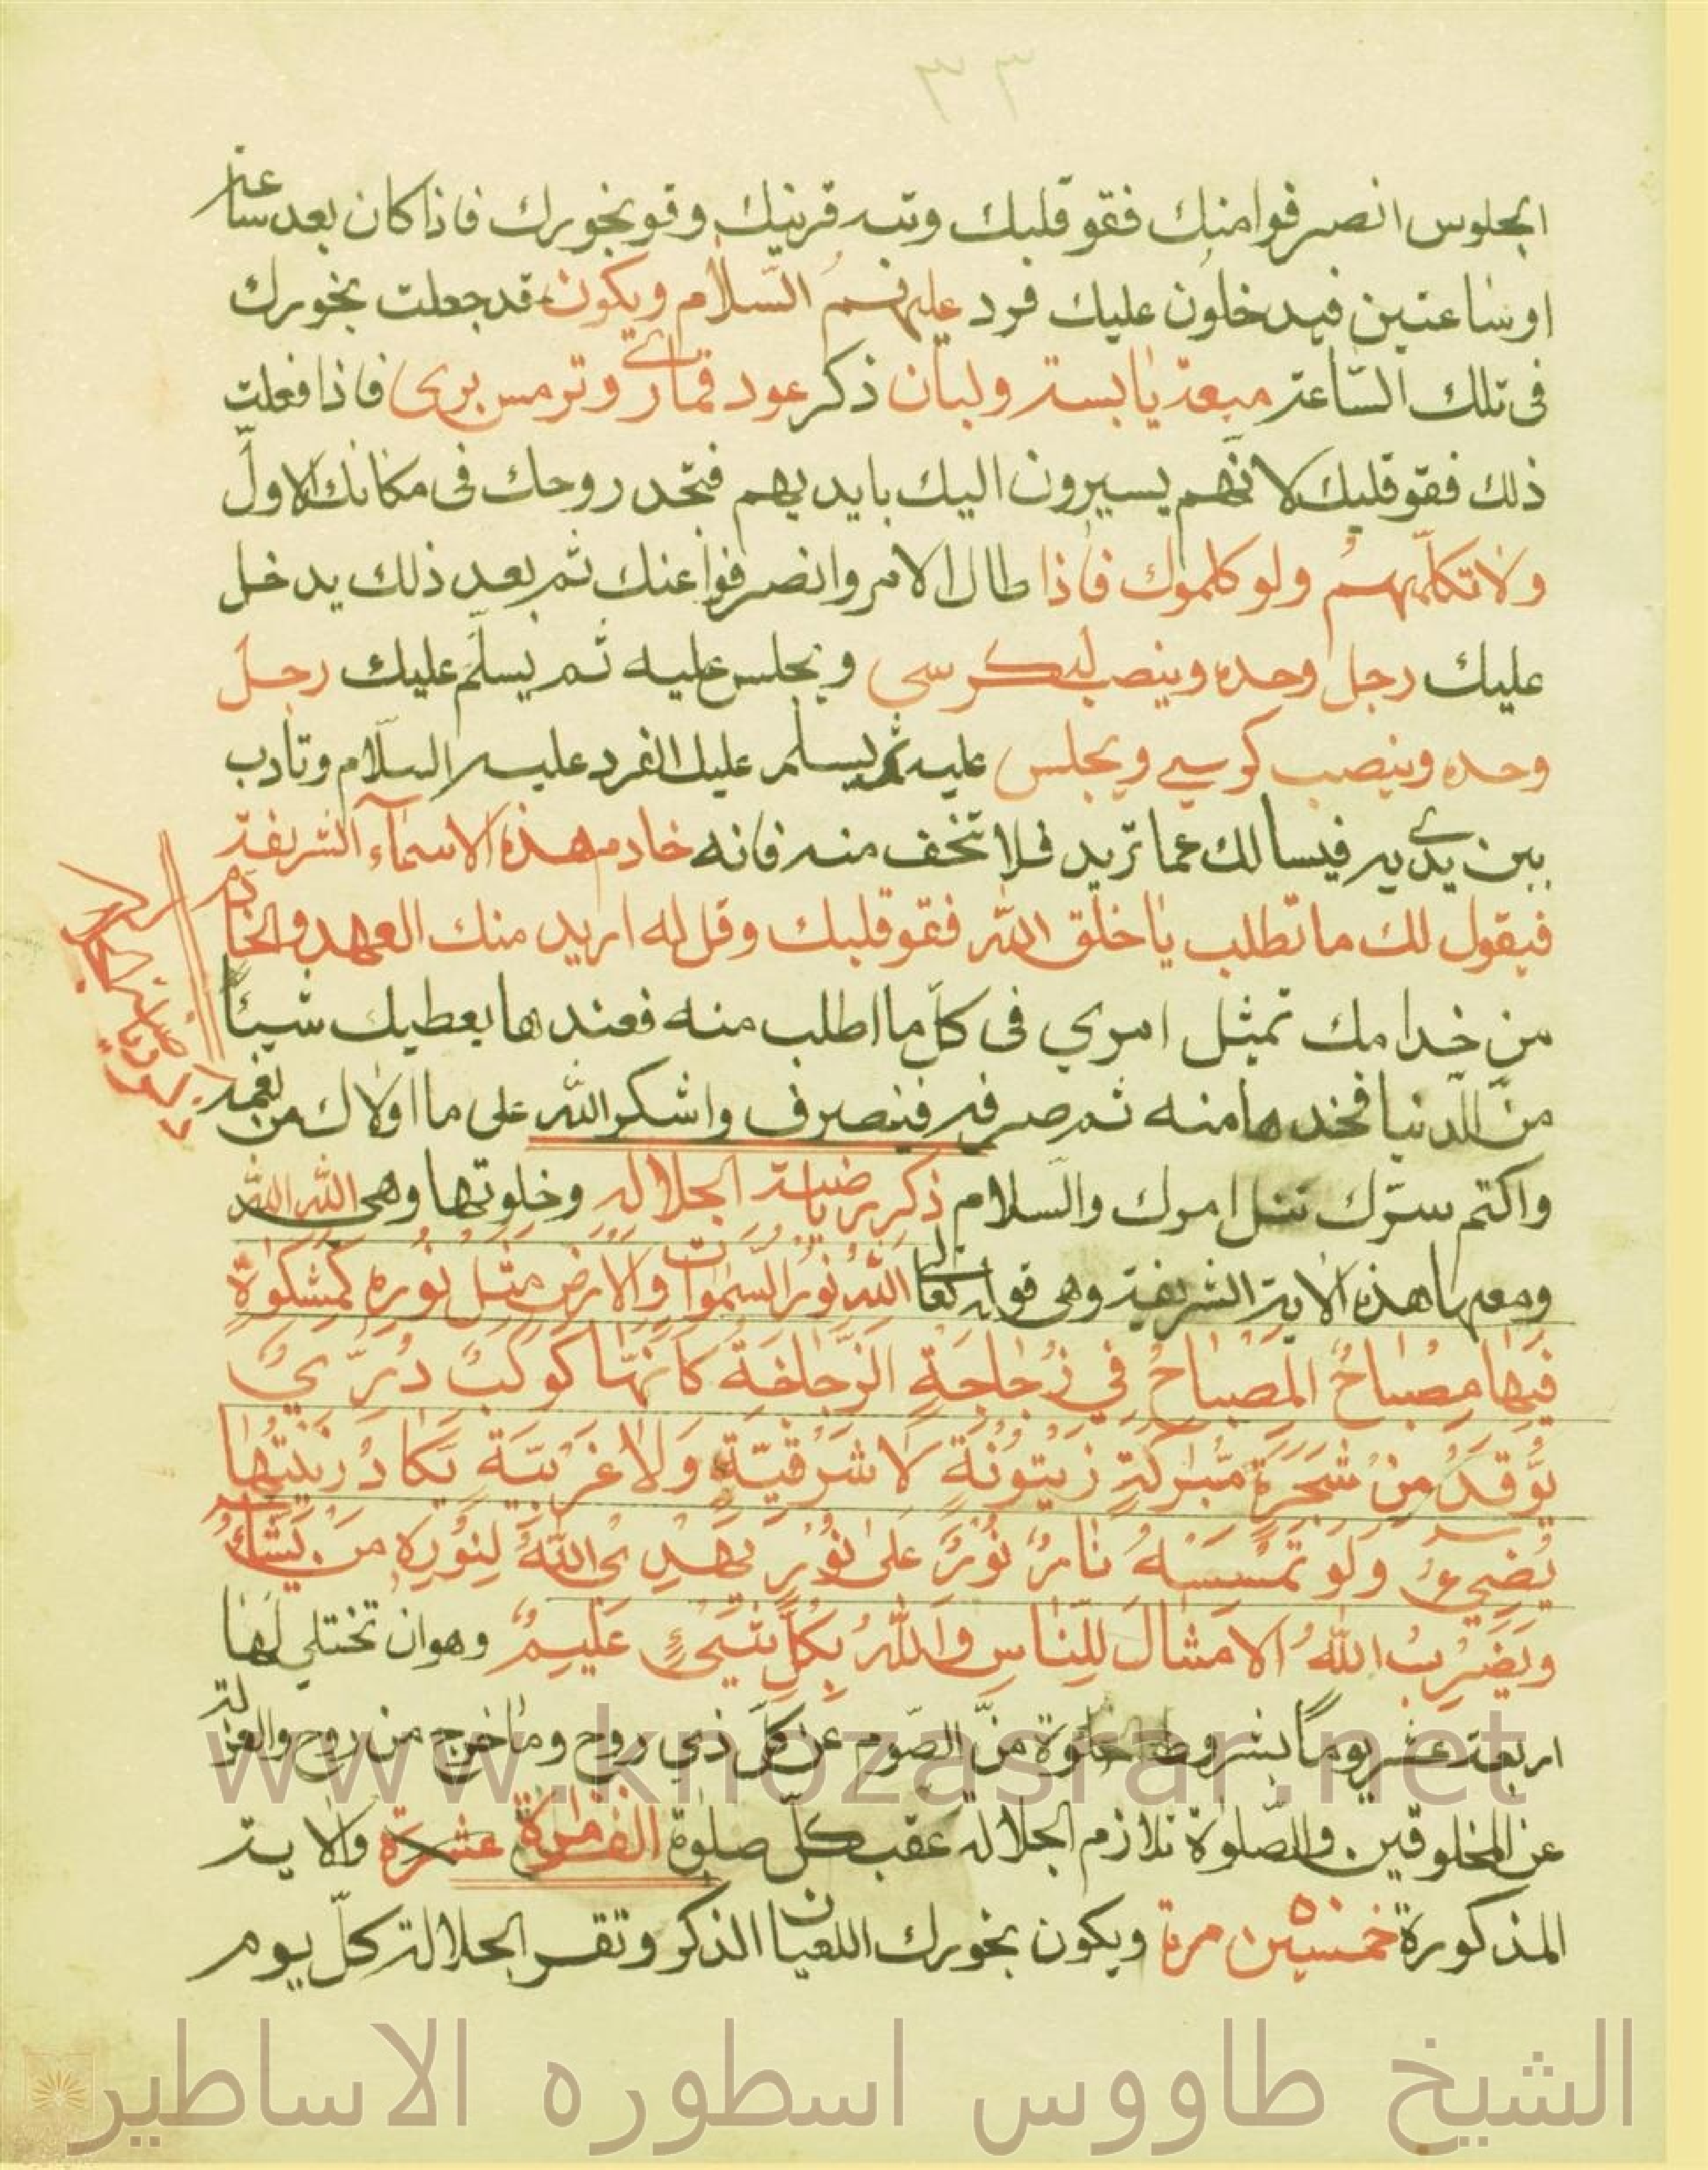 ٣٣
الجلوس انصرفوا منك فقو قلبك وتبه قرينك وقو بخورك فاذا كان بعد ساعة
او ساعتين فيدخلون عليك فرد عليهم السلام ويكون قد جعلت بخورك
فى تلك الساعة ميعة يابسة ولبان ذكر عود قمارى وترمس برى فاذا فعلت
ذلك فقو قلبك لانهم يسيرون اليك بايديهم فتجد روحك فى مكانك الاول
ولا تكلمهم ولو كلموك فاذا طال الامر وانصرفوا عنك ثم بعد ذلك يدخل
عليك رجل وحده وينصب له كرسى ويجلس عليه ثم يسلم عليك رجل
وحده وينصب كرسي ويجلس عليه ثم يسلم عليك الفرد عليه السلام وتادب
بين يديه فيسالك عما تريد فلا تخف منه فانه خادم هذه الاسماء الشريفة
فيقول لك ما تطلب يا خلق الله فقو قلبك وقل له اريد منك العهد والخاتم
من خدامك تمثل امري فى كل ما اطلب منه فعندها يعطيك شيئاً
من الدنيا فخدها منه ثم صرفه فينصرف واشكر الله على ما اولاك من نعمه
واكتم سرك تنل امرك والسلام ذكر رياضة الجلاله وخلوتها وهى الله الله
ومعها هذه الاية الشريفة وهى قوله تعالى اللهُ نُورُ السَّمٰوٰاتِ وَالْاَرْضِ مَثَلُ نُورِهِ كَمِشْكٰوةٍ
فِيهٰا مِصْبٰاحٌ المِصْبٰاحُ فِي زُجٰاجَةٍ الزُّجٰاجَةُ كَاَنَّهٰا كَوْكَبٌ دُرِّيٌّ
يُوقَدُ مِنْ شَجَرَةٍ مُبٰرَكَةٍ زَيْتُونَةٍ لاٰ شَرْقِيَّةٍ وَلاٰ غَرْبِيَّةٍ يَكٰادُ زَيْتُهٰا
يُضِيءُ وَلَوْ لَمْ تَمْسَسْهُ نٰارٌ نُورٌ عَلىٰ نُورٍ يَهْدِى اللهُ لِنُورِهِ مَنْ يَشٰاءُ
وَيَضْرِبُ اللهُ الاَمْثٰالَ لِلنّٰاسِ وَاللهُ بِكُلِّ شَيْءٍ عَلِيمٌ وهو ان تختلي لها
اربعة عشر يوماً بشروط خلوة من الصوم عن كل ذي روح وما خرج من روح والعزلة
عن المخلوقين والصلوة تلازم الجلاله عقب كل صلوة الف مرة عشرة والاية
المذكورة خمسين مرة ويكون بخورك اللبان الذكر وتقر الجلالة كل يوم
www.knozasrar.net
الشيخ طاووس اسطوره الاساطير